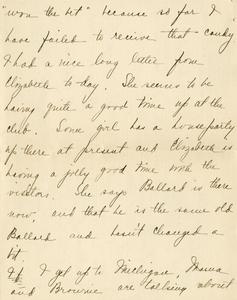 "won the bet" because so far I
have failed to receive that candy
I had a nice long letter from
Elizabeth to-day. She seems to be
having quite a good time up at the
club. Some girl has a houseparty
up there at present and Elizabeth is
having a jolly good time with the
visitors. She says Ballard is there
now, and that he is the same old
Ballard and hasn't changed a
bit.
If I get up to Michigan, Mama
and Brownie are talking about